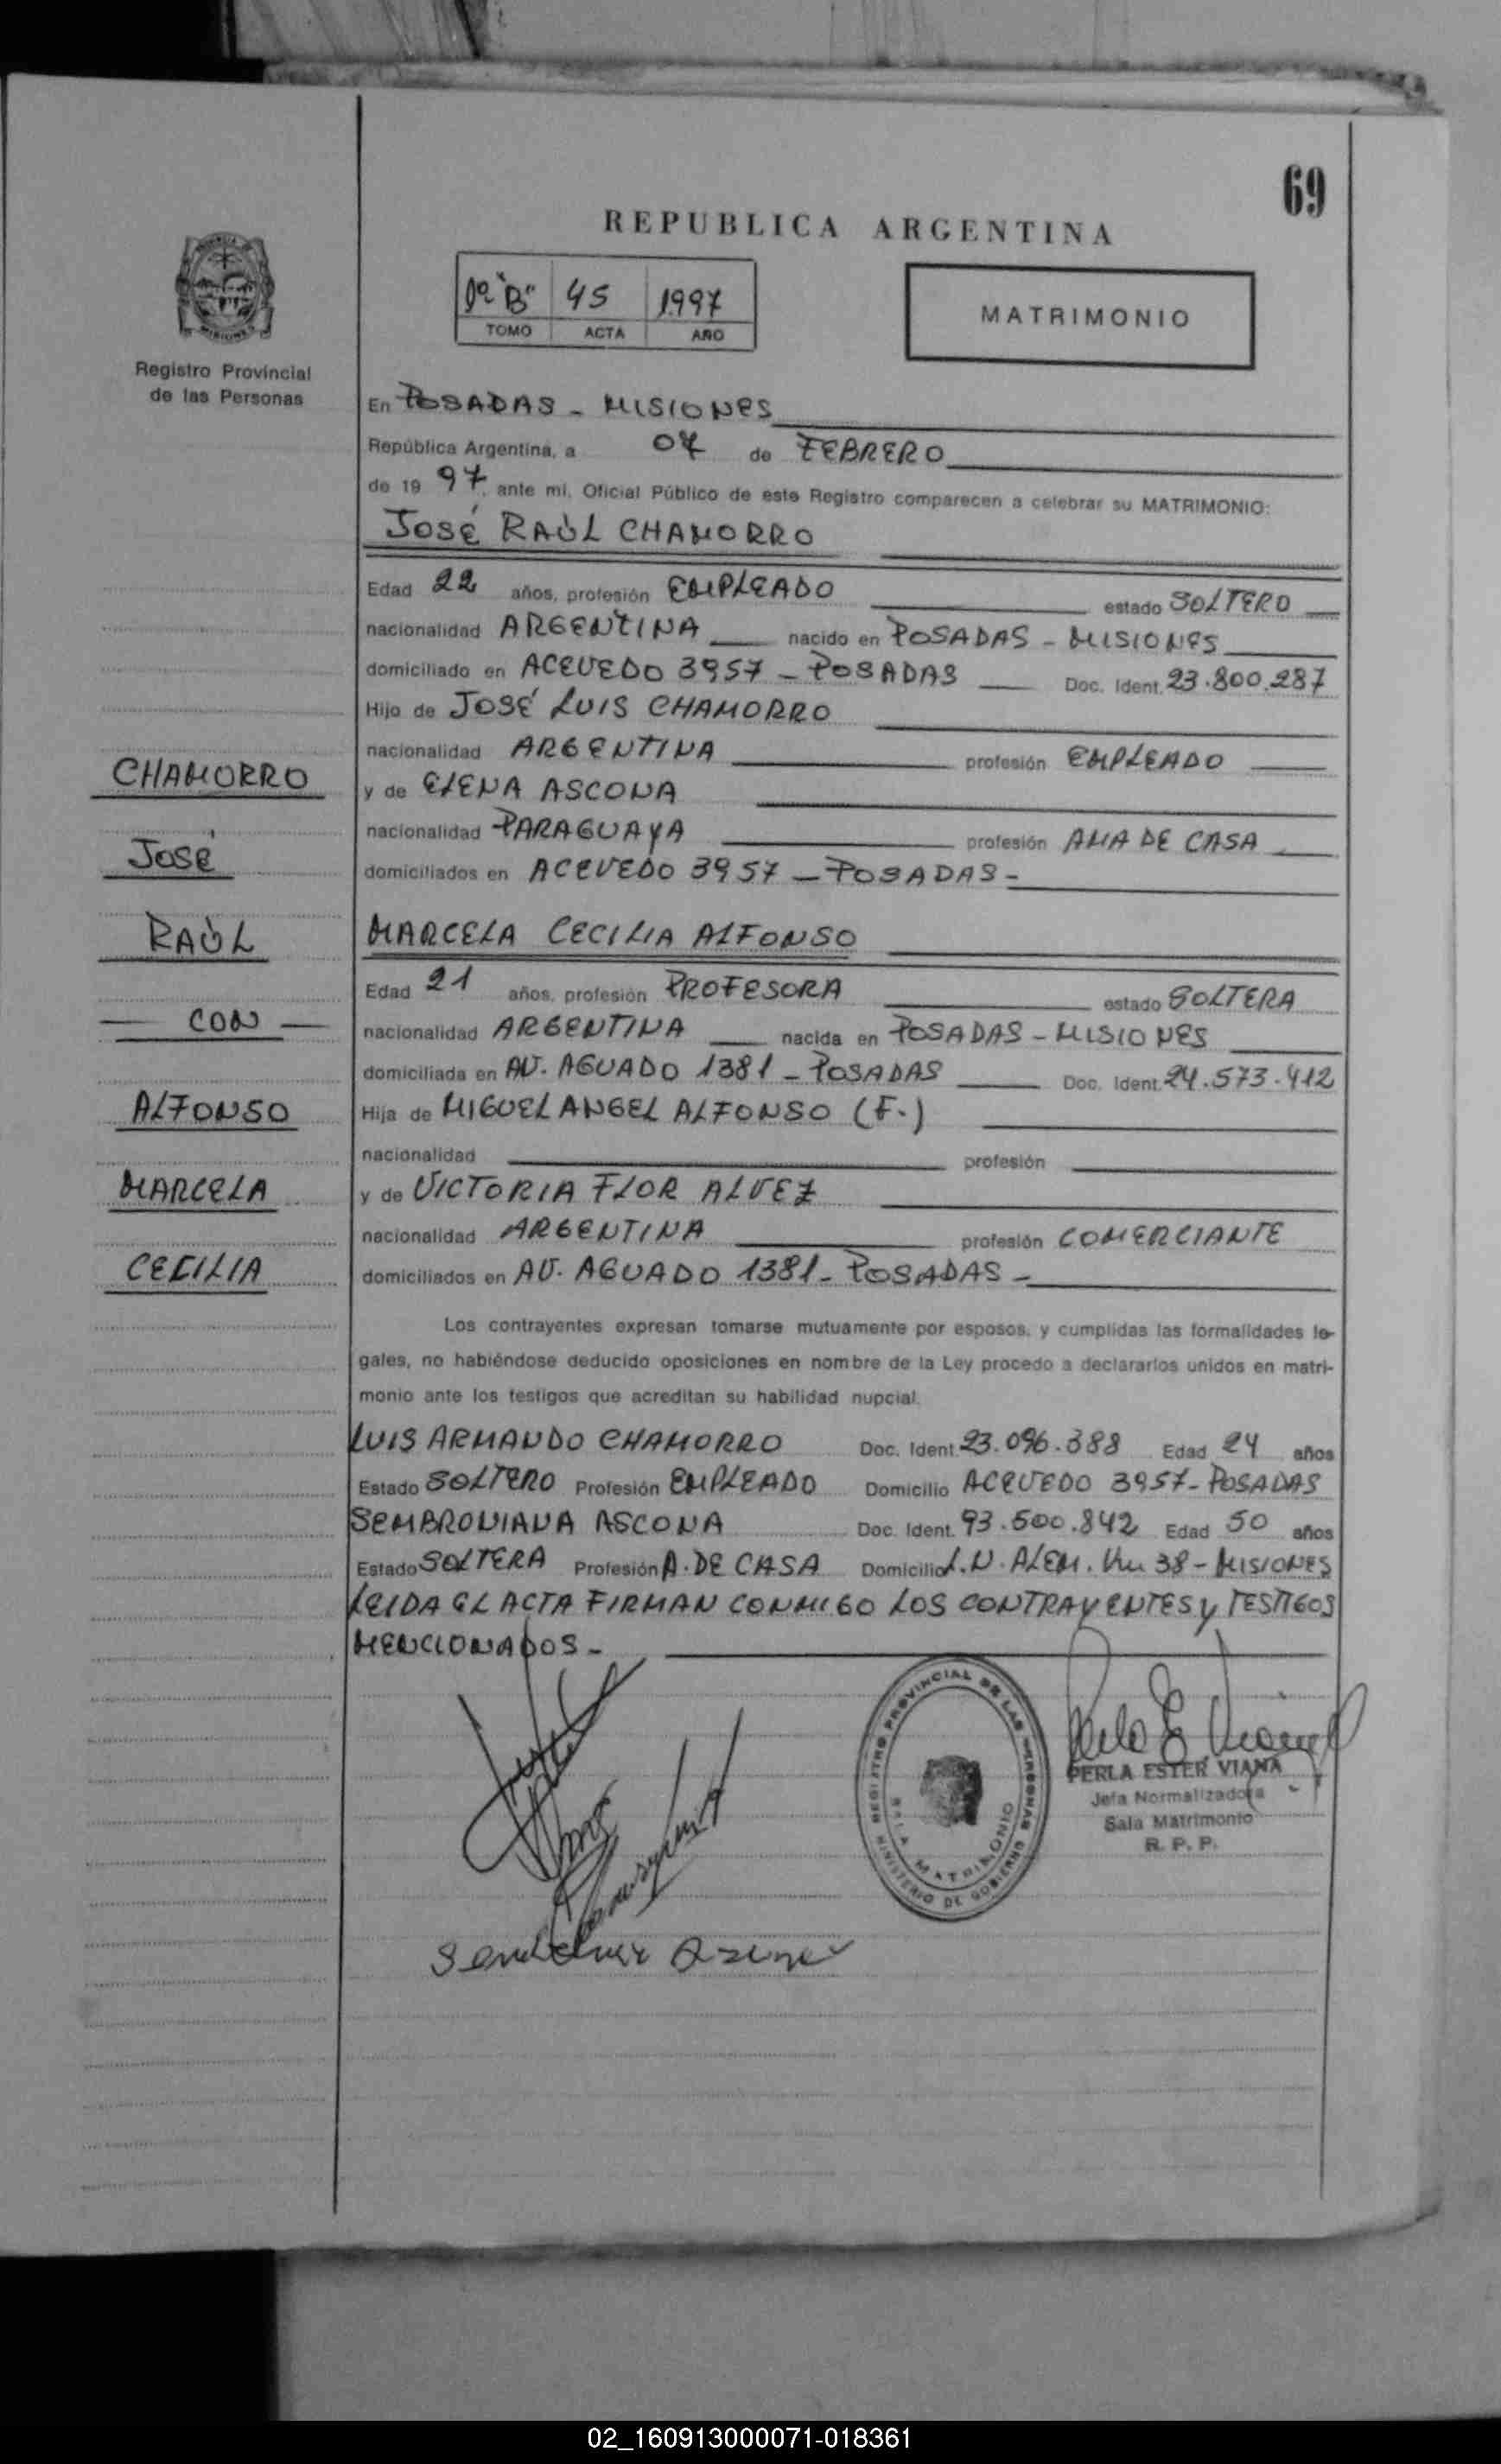 69
REPUBLICA ARGENTINA
1º "B" 45 1997
TOMO ACTA AÑO
MATRIMONIO
Registro Provincial
de las Personas
En POSADAS - MISIONES
República Argentina, a 07 de FEBRERO
de 19 97, ante mi, Oficial Público de este Registro comparecen a celebrar su MATRIMONIO:
JOSÉ RAÚL CHAMORRO
Edad 22 años, profesión EMPLEADO estado SOLTERO
nacionalidad ARGENTINA nacido en POSADAS - MISIONES
domiciliado en ACEVEDO 3957 - POSADAS Doc. Ident. 23.800.287
Hijo de JOSÉ LUIS CHAMORRO
nacionalidad ARGENTINA profesión EMPLEADO
y de ELENA ASCONA
nacionalidad PARAGUAYA profesión AMA DE CASA
domiciliados en ACEVEDO 3957 - POSADAS -
MARCELA CECILIA ALFONSO
Edad 21 años, profesión PROFESORA estado SOLTERA
nacionalidad ARGENTINA nacida en POSADAS - MISIONES
domiciliada en AV. AGUADO 1381 - POSADAS Doc. Ident. 24.573.412
Hija de MIGUEL ANGEL ALFONSO (F.)
nacionalidad profesión
y de VICTORIA FLOR ALVEZ
nacionalidad ARGENTINA profesión COMERCIANTE
domiciliados en AV. AGUADO 1381 - POSADAS -
CHAMORRO
JOSÉ
RAÚL
CON
ALFONSO
MARCELA
CECILIA
Los contrayentes expresan tomarse mutuamente por esposos, y cumplidas las formalidades le-
gales, no habiéndose deducido oposiciones en nombre de la Ley procedo a declararlos unidos en matri-
monio ante los testigos que acreditan su habilidad nupcial.
LUIS ARMANDO CHAMORRO Doc. Ident. 23.096.388 Edad 24 años
Estado SOLTERO Profesión EMPLEADO Domicilio ACEVEDO 3957 - POSADAS
SEMBRONIANA ASCONA Doc. Ident. 93.500.842 Edad 50 años
Estado SOLTERA Profesión A. DE CASA Domicilio L.N. ALEM. Km 38 - MISIONES
LEIDA EL ACTA FIRMAN CONMIGO LOS CONTRAYENTES y TESTIGOS
MENCIONADOS -
REGISTRO PROVINCIAL DE LAS PERSONAS
SALA MATRIMONIO
MINISTERIO DE GOBIERNO
PERLA ESTER VIANA
Jefa Normalizadora
Sala Matrimonio
R. P. P.
02_160913000071-018361